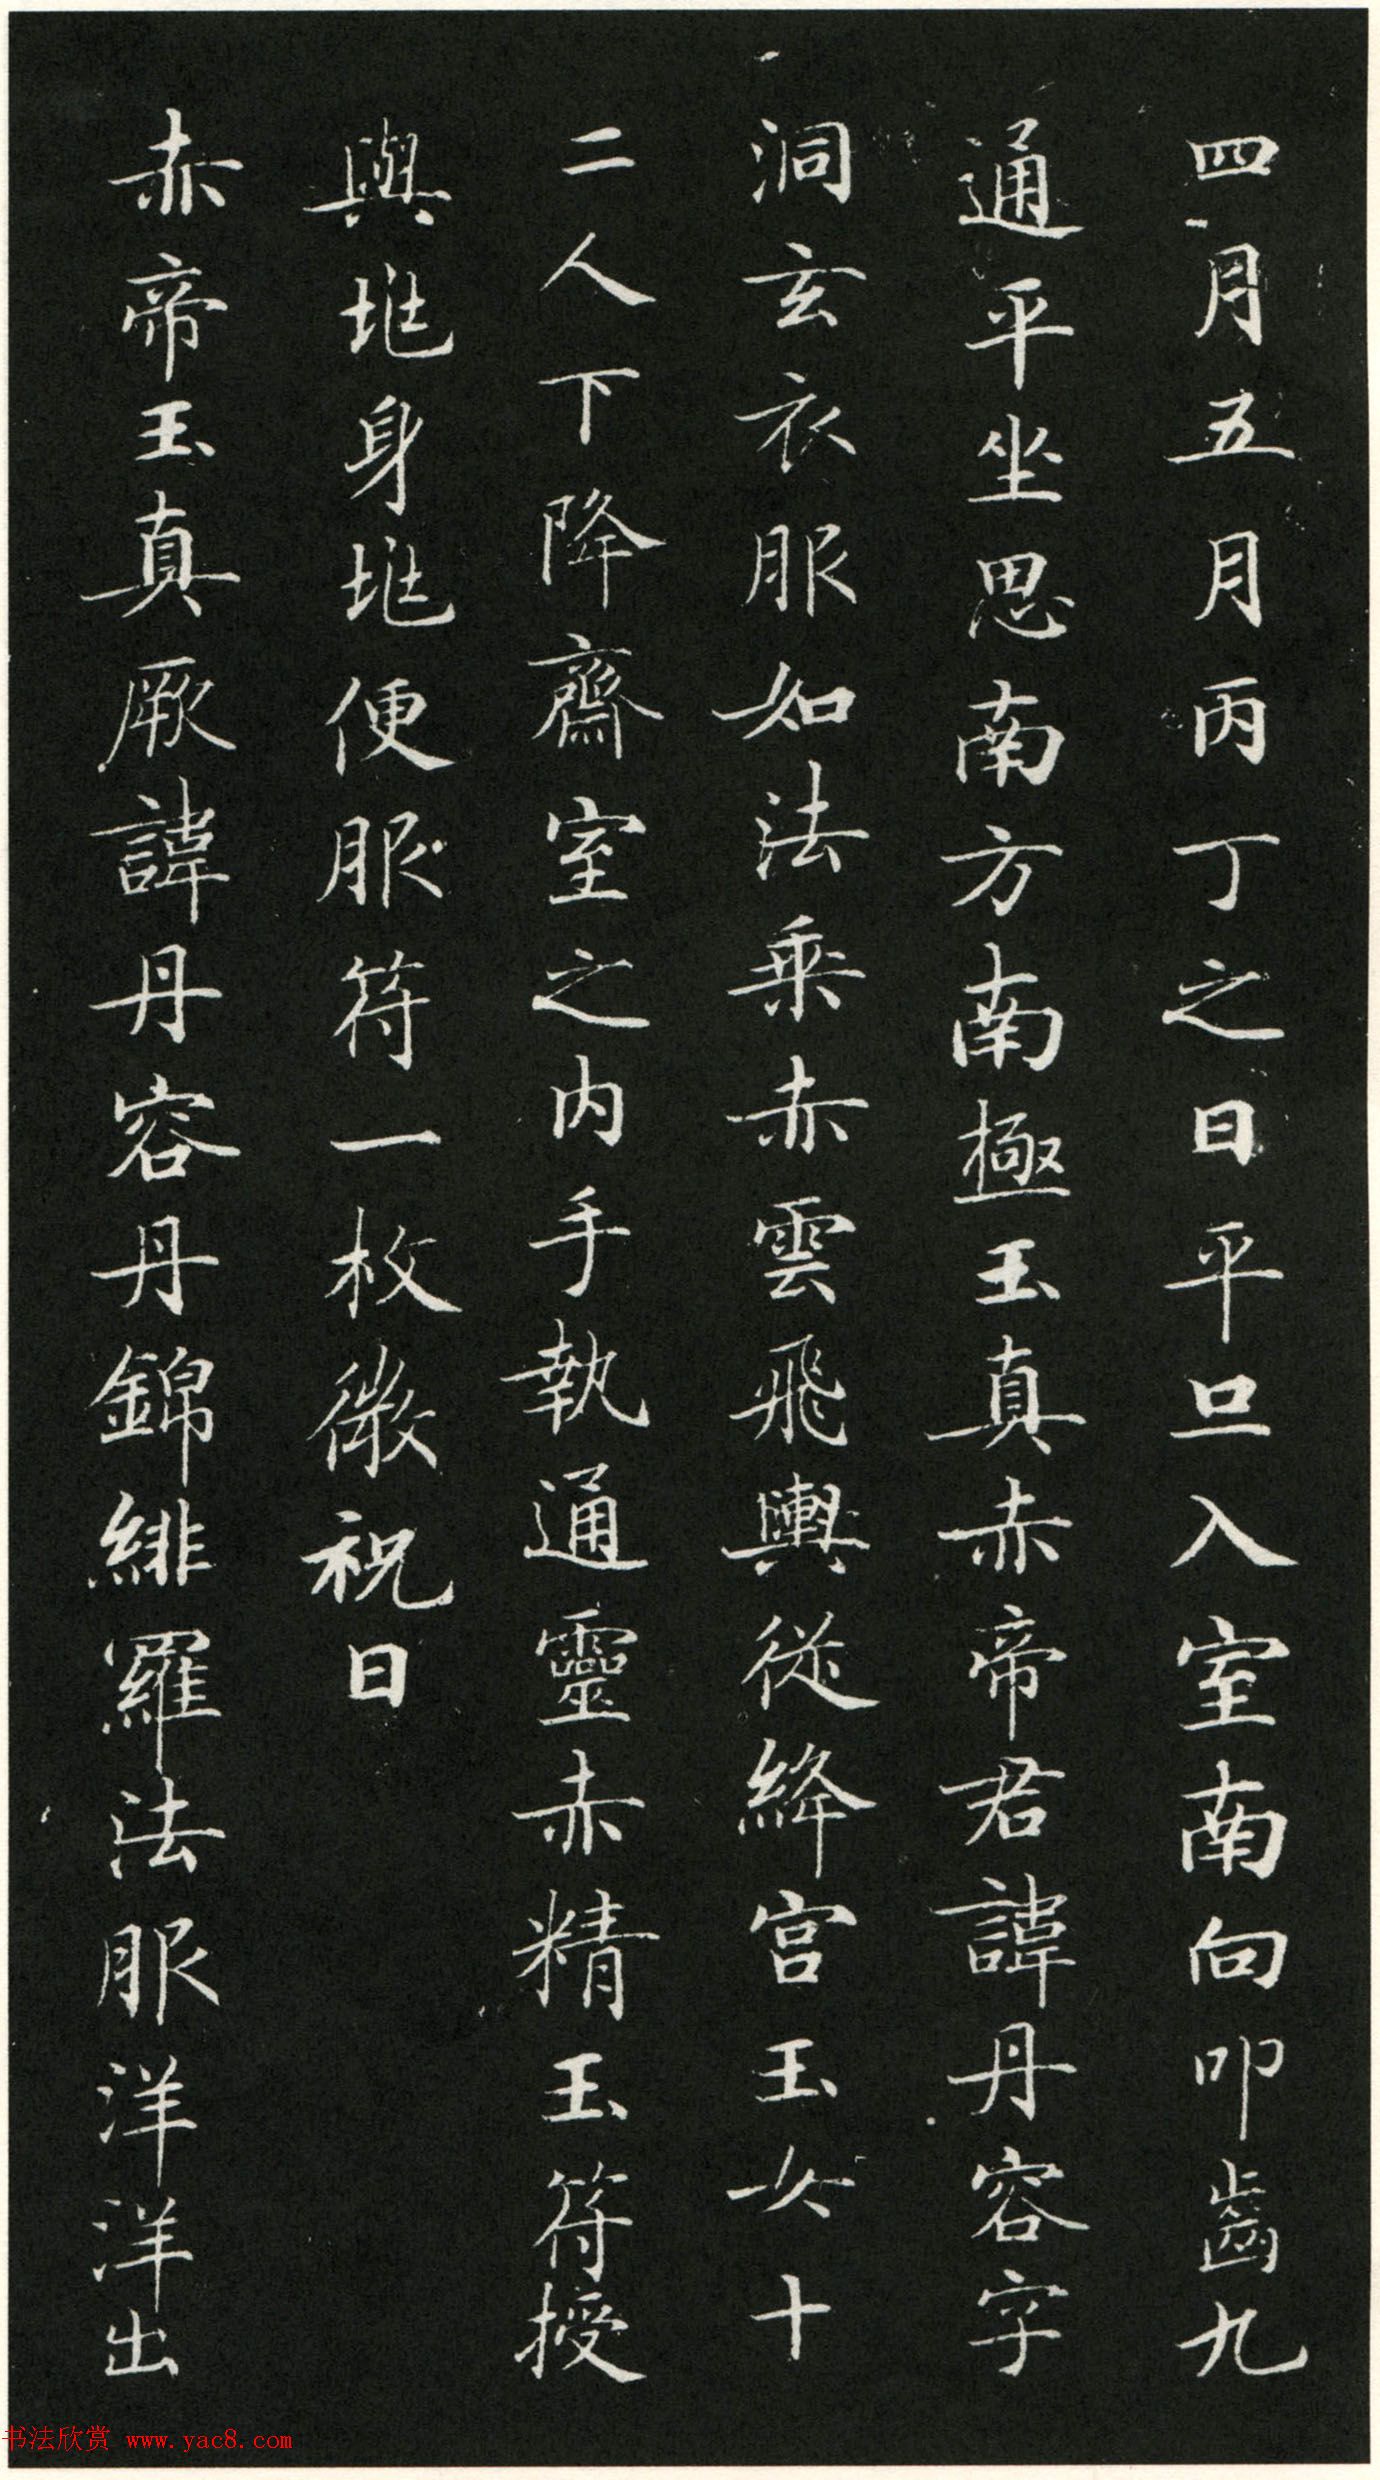 四月五月丙丁之日平旦入室南向叩齒九
通平坐思南方南極玉真赤帝君諱丹容字
洞玄衣服如法乘赤雲飛輿從絳宮玉女十
二人下降齋室之內手執通靈赤精玉符授
與兆身兆便服符一枚微祝曰
赤帝玉真厥諱丹容丹錦緋羅法服洋洋出
书法欣赏 www.yac8.com